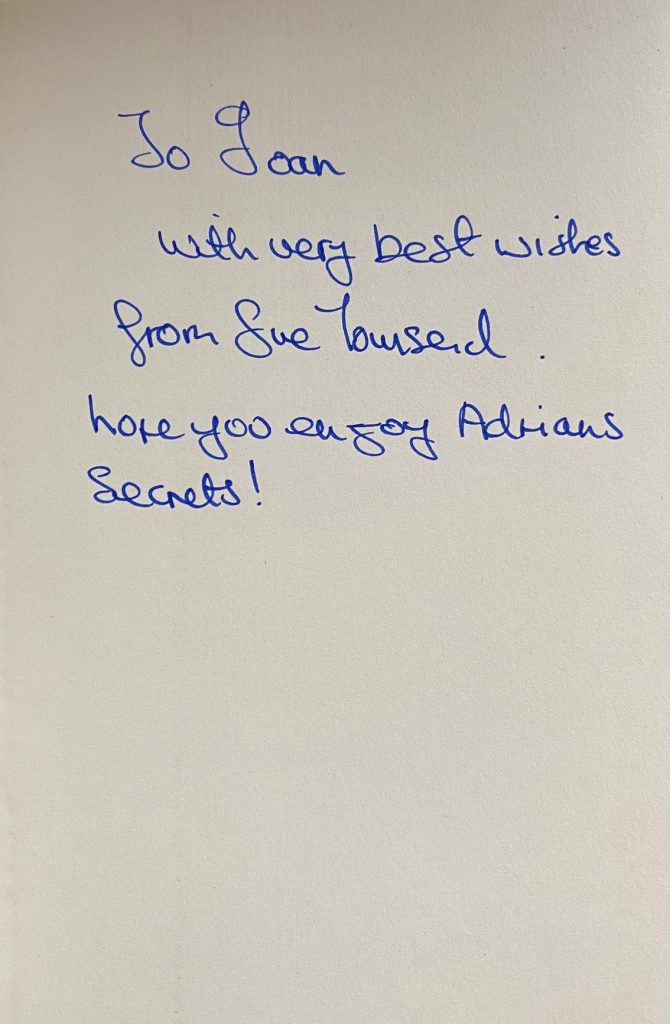 To Joan
with very best wishes
from Sue Townsend .
hope you enjoy Adrians
Secrets!